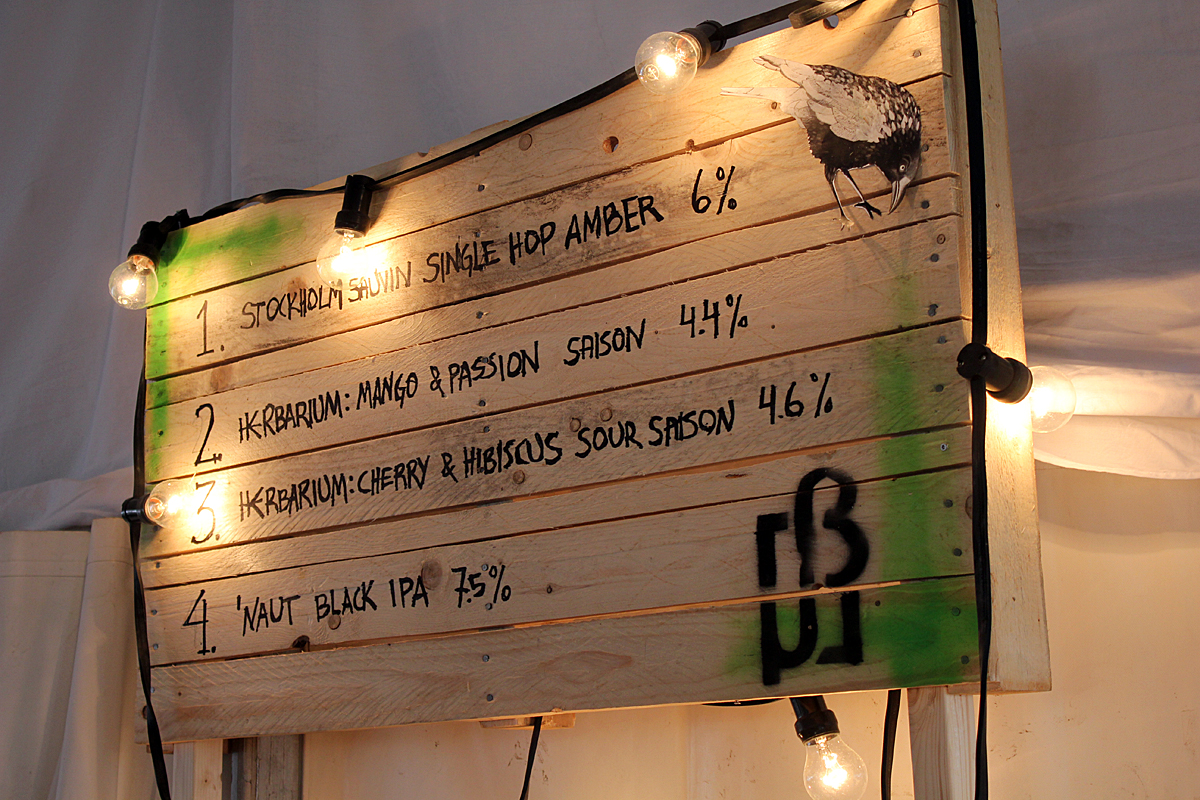 1. STOCKHOLM SAUVIN SINGLE HOP AMBER 6%
2. HERBARIUM: MANGO & PASSION SAISON 4.4%
3. HERBARIUM: CHERRY & HIBISCUS SOUR SAISON 4.6%
4. 'NAUT BLACK IPA 7.5%